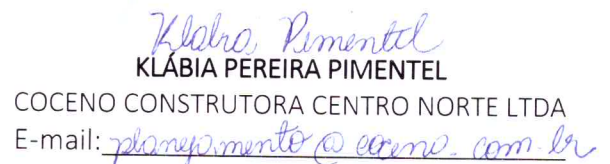 Klábia Pimentel
KLÁBIA PEREIRA PIMENTEL
COCENO CONSTRUTORA CENTRO NORTE LTDA
E-mail: planejamento@coceno.com.br